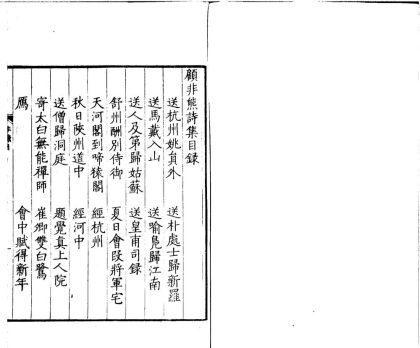 顧非熊詩集目録
送杭州姚員外　送朴處士歸新羅
送馬戴入山　送喻鳧歸江南
送人及第歸姑蘇　送皇甫司録
舒州酬別侍御　夏日會段將軍宅
天河閣到啼猿閣　經杭州
秋日陜州道中　經河中
送僧歸洞庭　題覺真上人院
寄太白無能禪師　崔卿雙白鷺
鴈　會中賦得新年